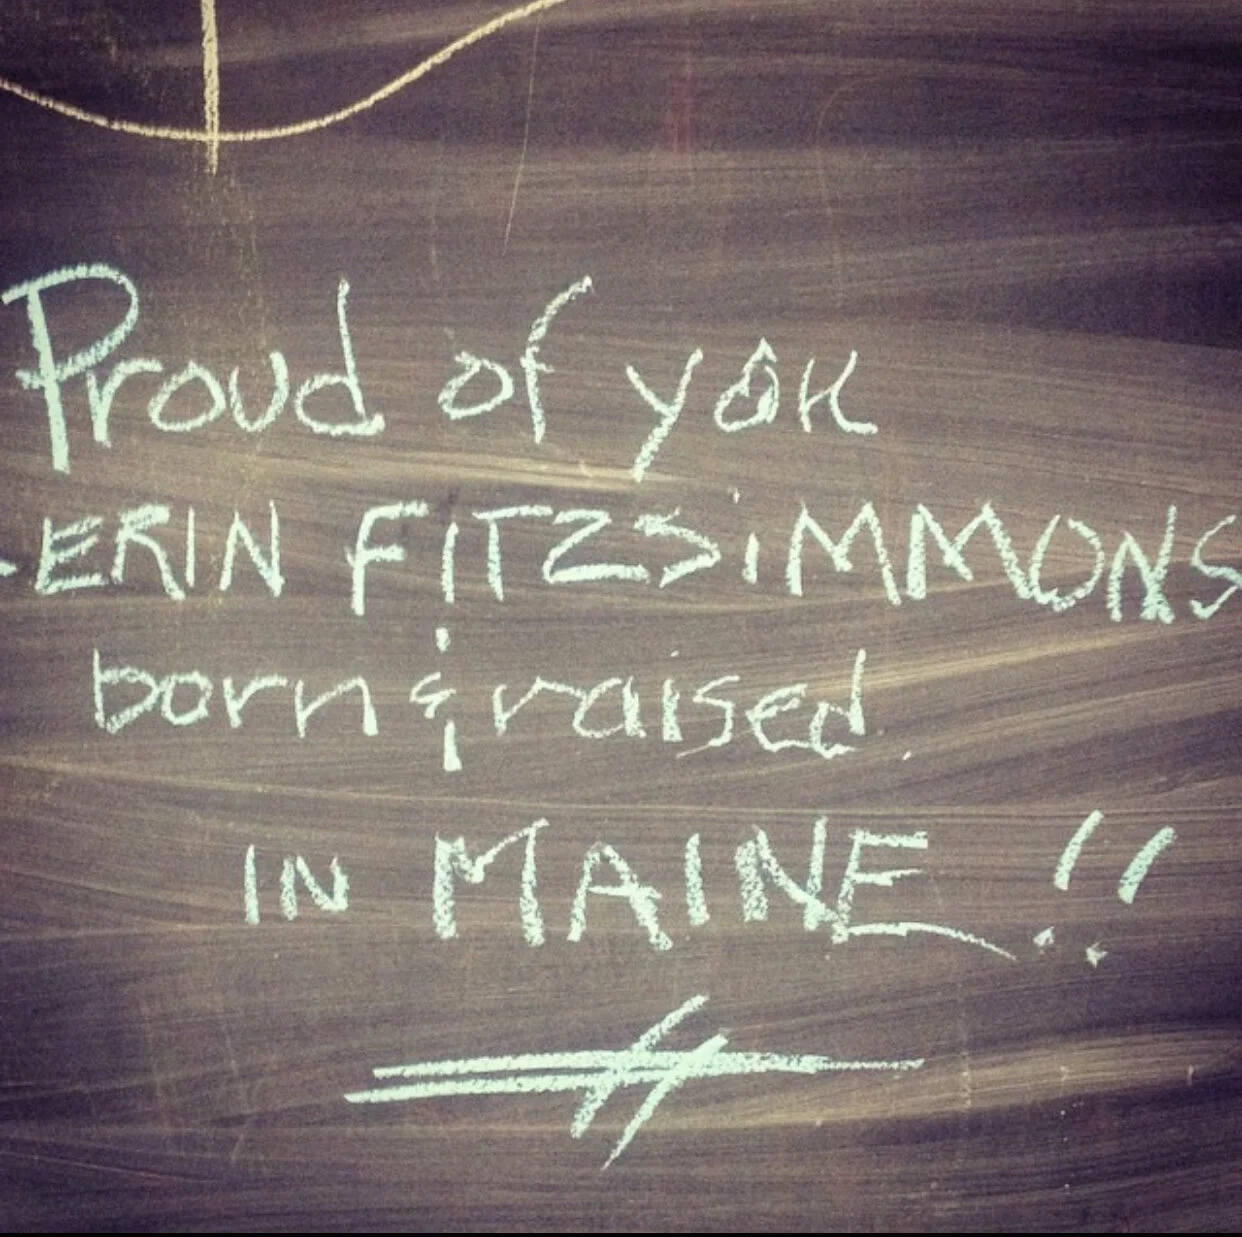 Proud of you
-ERIN FITZSiMMONS
born & raised
IN MAINE!!